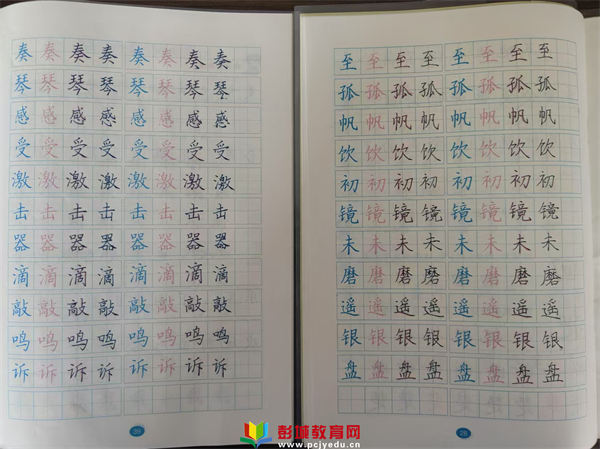 奏 奏 奏 奏 奏 奏 奏 奏
琴 琴 琴 琴 琴 琴 琴 琴
感 感 感 感 感 感 感 感
受 受 受 受 受 受 受 受
激 激 激 激 激 激 激 激
击 击 击 击 击 击 击 击
器 器 器 器 器 器 器 器
滴 滴 滴 滴 滴 滴 滴 滴
敲 敲 敲 敲 敲 敲 敲 敲
鸣 鸣 鸣 鸣 鸣 鸣 鸣 鸣
诉 诉 诉 诉 诉 诉 诉 诉
至 至 至 至 至 至 至 至
孤 孤 孤 孤 孤 孤 孤 孤
帆 帆 帆 帆 帆 帆 帆 帆
饮 饮 饮 饮 饮 饮 饮 饮
初 初 初 初 初 初 初 初
镜 镜 镜 镜 镜 镜 镜 镜
未 未 未 未 未 未 未 未
磨 磨 磨 磨 磨 磨 磨 磨
遥 遥 遥 遥 遥 遥 遥 遥
银 银 银 银 银 银 银 银
盘 盘 盘 盘 盘 盘 盘 盘
28
彭城教育网
www.pcjyedu.cn